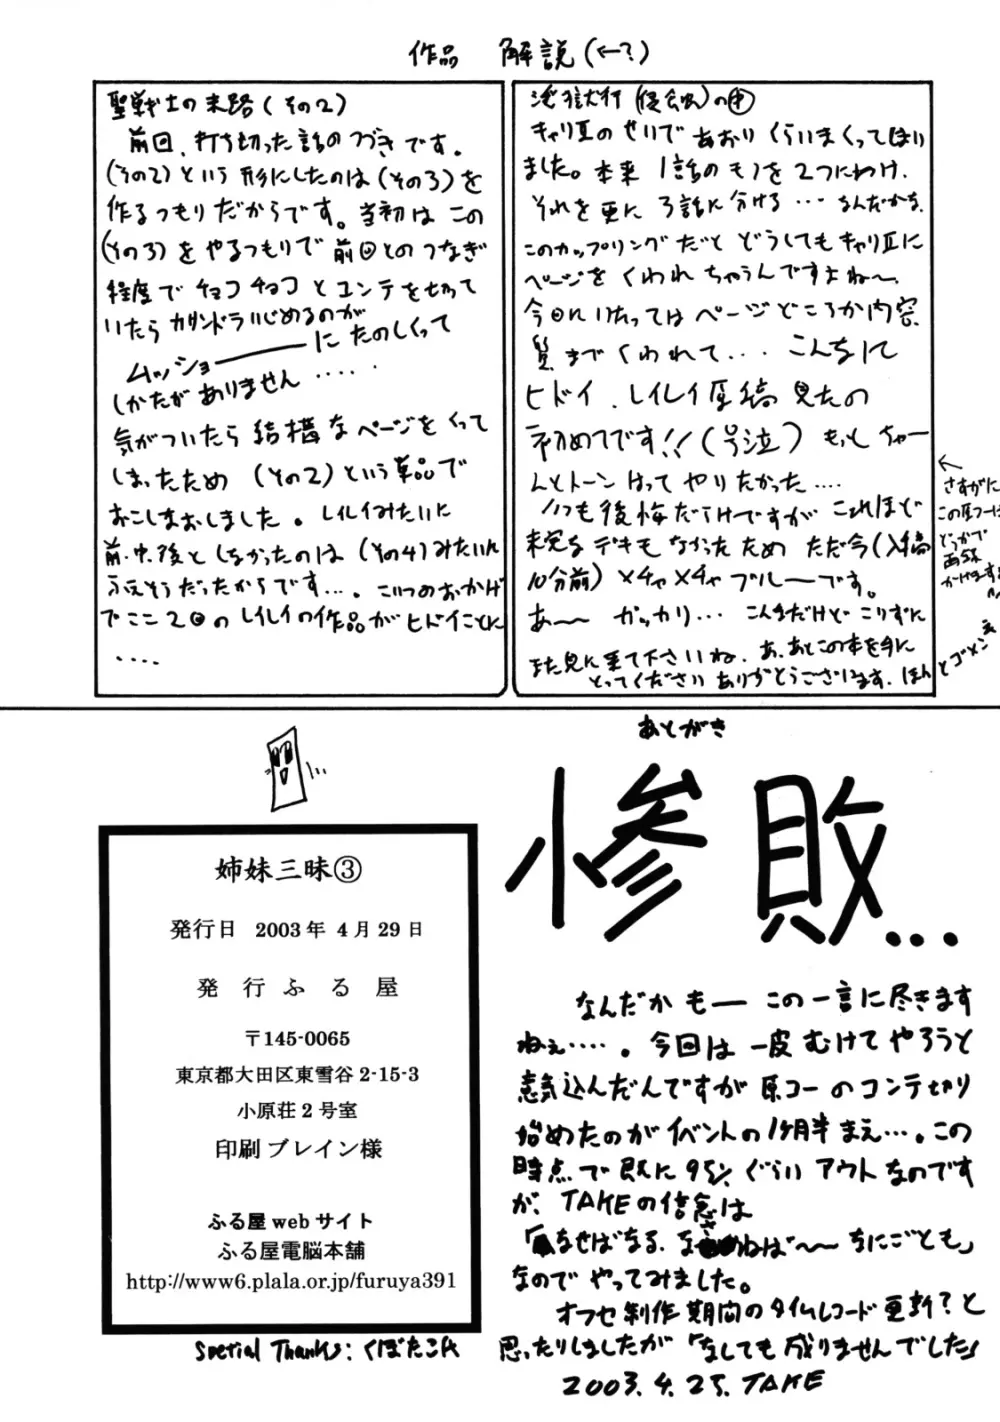 作品 解説(←?)
聖戦士の末路(その2)
前回、打ち切った話のつづきです。
(その2)という形にしたのは(その3)を
作るつもりだからです。当初はこの
(その3)をやるつもりで前回とのつなぎ
程度でチョコチョコとコンテを切って
いたらカサンドラいじめるのが
ムッショーーーーに たのしくって
しかたがありません・・・・・
気がついたら結構なページをくって
しまったため(その2)という単品で
おこしなおしました。レイレイみたいに
前・中・後としなかったのは(その4)みたいに
ふえそうだったからです・・・。こいつのおかげ
でここ2回のレイレイの作品がヒドイことに
・・・・
淫獄行(侵食)の中
キャリIIのせいであおりくらいまくってはい
ました。本来1話のモノを2つにわけ、
それを更に3話に分ける・・・なんだかな。
このカップリングだとどうしてもキャリIIに
ページをくわれちゃうんですよね〜
今回にいたってはページどころか内容
質までくわれて・・・ こんなに
ヒドイ、レイレイ原稿見たの
初めてです!!(号泣)もっとちゃー
んとトーンはってやりたかった....
いつも後悔だらけですがこれほど
未完なデキもなかったためただ今(入稿
10分前)メチャメチャブルーです。
あ〜〜 ガッカリ・・・こんなだけどこりずに
また見に来て下さいね、あ、あとこの本を手に
とってくださいありがとうございます。ほんとゴメンネ
←
さすがに
この原コーは
どっかで
再録
かけます
あとがき
惨敗...
なんだかもーーこの一言に尽きます
ねぇ・・・・。今回は一皮むけてやろうと
意気込んだんですが原コーのコンテ切り
始めたのがイベントの1ヶ月半まえ・・・。この
時点で既に95%ぐらいアウトなのです
が、TAKEの信念は
「なせばなる、なさねば〜〜なにごとも」
なのでやってみました。
オフセ制作期間のタイムレコード更新?と
思ったりしましたが「なしても成りませんでした」
2003.4.25.TAKE
姉妹三昧③
発行日 2003年4月29日
発行ふる屋
〒145-0065
東京都大田区東雪谷2-15-3
小原荘2号室
印刷 ブレイン様
ふる屋webサイト
ふる屋電脳本舗
http://www6.plala.or.jp/furuya391
Spetial Thanks: くぼたこん